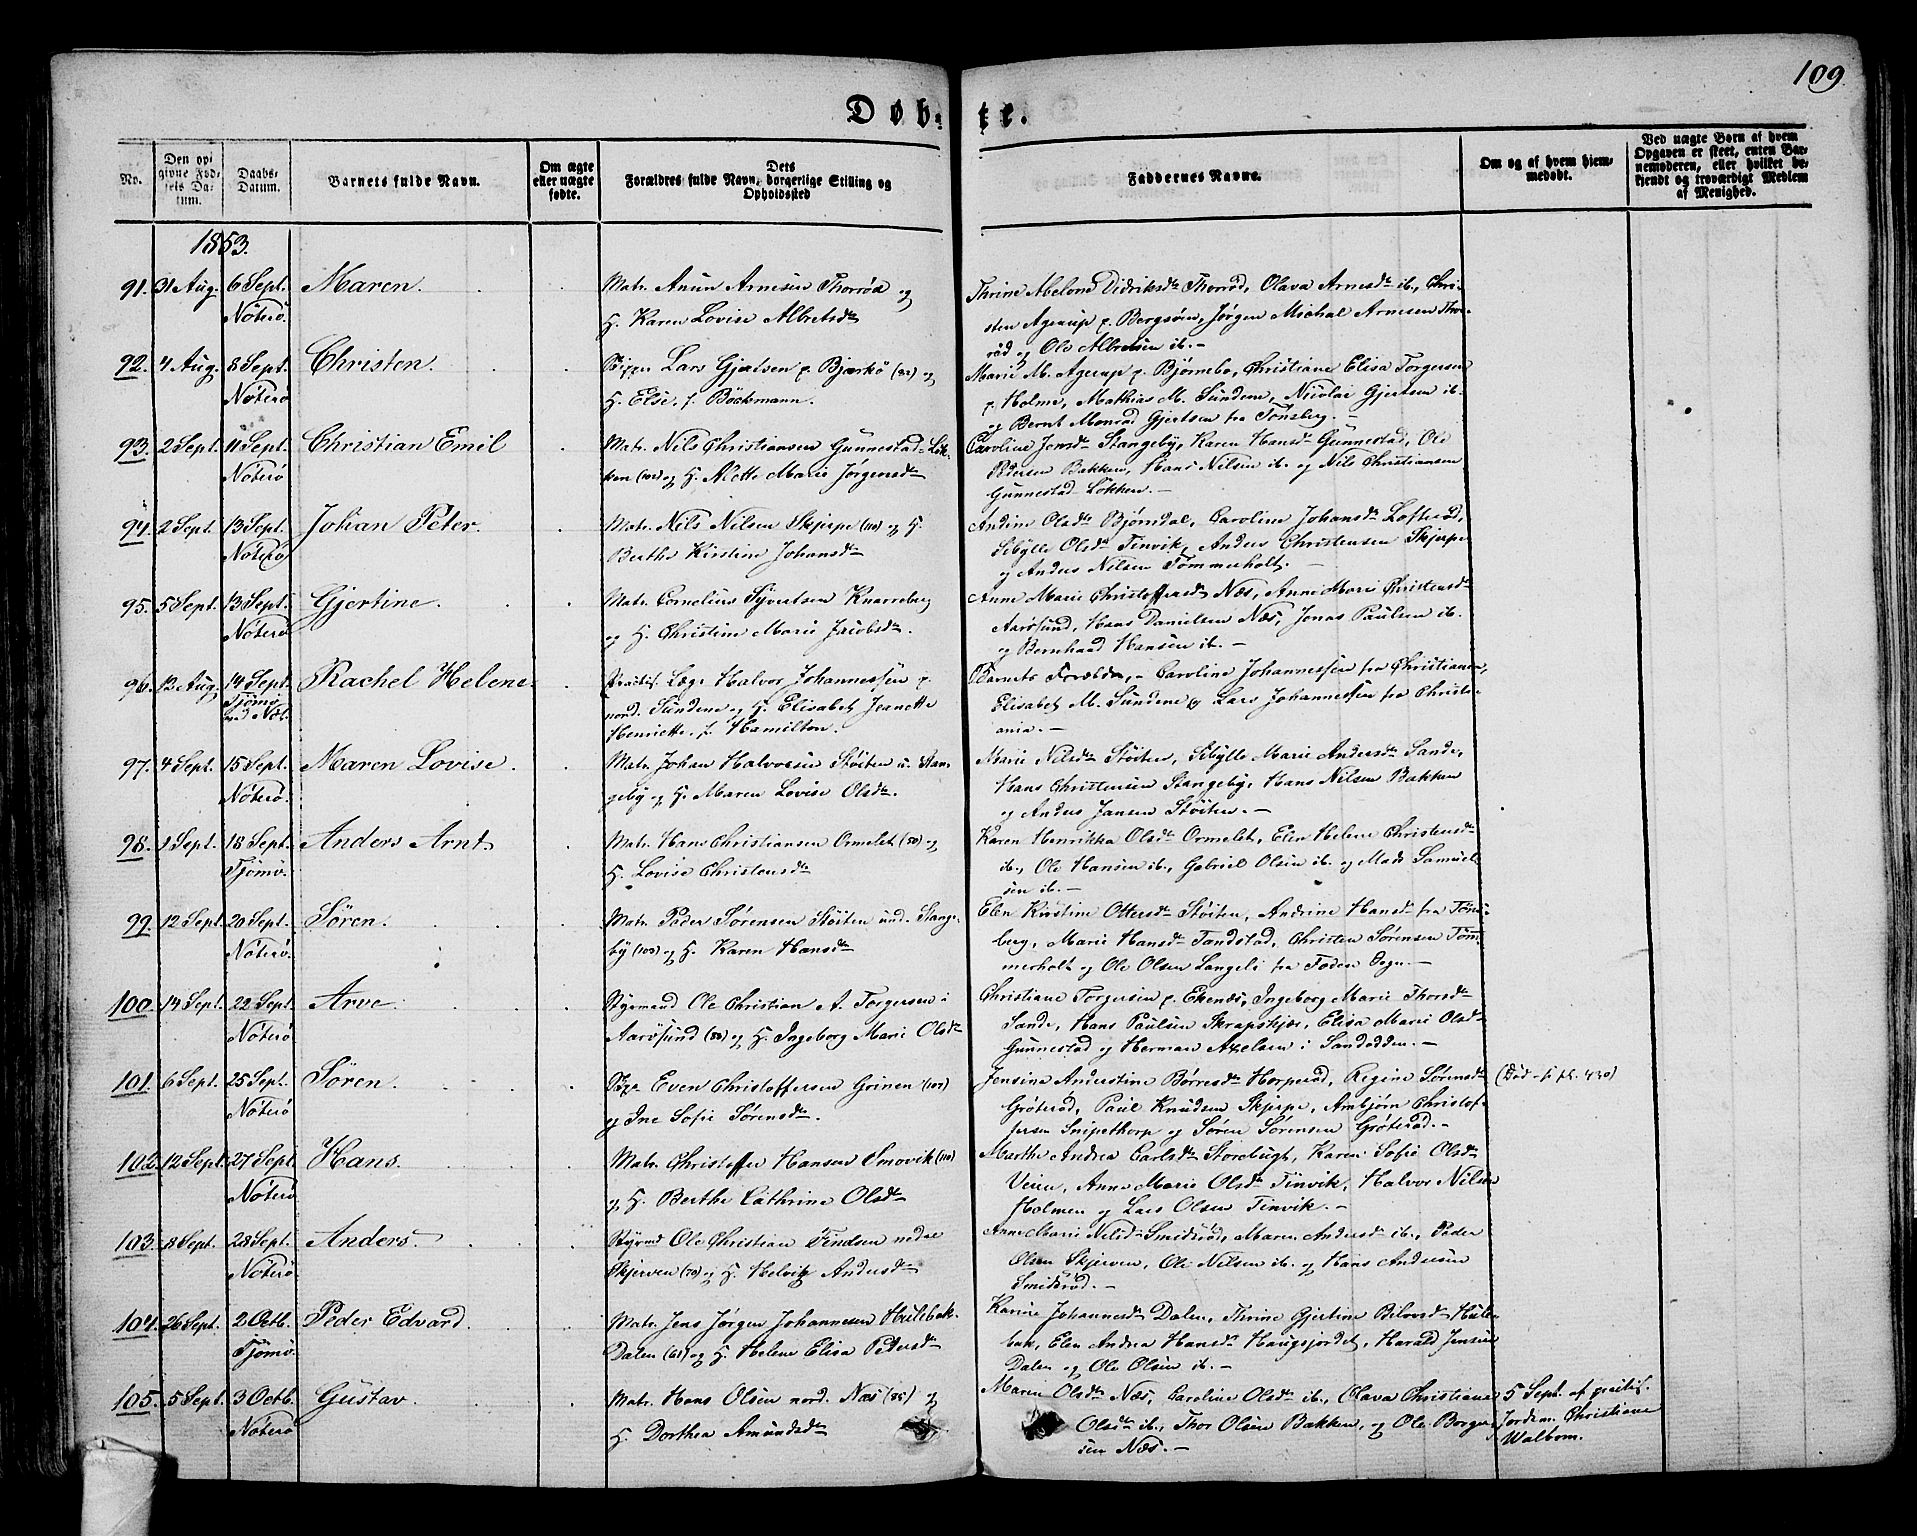 109.
Døbte.
No.
Den opgivne Fødsels Datum.
Daabs-Datum.
Barnets fulde Navn.
Om ægte eller uægte fødte.
Dets Forældres fulde Navn, borgerlige Stilling og Opholdssted
Faddernes Navne.
Om og af hvem hjemmedøbt.
Ved uægte Børn af hvem Opgaven er skeet, enten Barnemoderen, eller hvilket bekjendt og troværdigt Medlem af Menighed.
1853.
91. 31 Aug. 6 Sept. Nøterö. Maren.
Matr. Anun Arnesen Thorröd og
H. Karen Lovise Albretsdtr
Thrine Abelone Didriksdtr Thorröd, Olava Arnesdtr ib., Chri-
sten Agerup p. Bergsöen, Jørgen Michal Arnesen Thor-
röd og Ole Albretsen ib. —
92. 4 Aug. 8 Sept. Nøterö Christen.
Skipper Lars Gjertsen p. Bjerkö (32) og
H. Else f. Böckmann.
Marie M. Agerup p. Bjørnebo, Christiane Elisa Torgersen
p. Holme, Mathias M. Sundene, Nicolai Gjertsen ib.
og Bernt Monrad Gjertsen fra Tönsberg. —
93. 2 Sept. 11 Sept. Nøterö Christian Emil
Matr. Nils Christiansen Gunnestad-Lök-
ken (102) og H. Mette Marie Jørgensdtr
Caroline Jonsdtr Stangeby, Karen Hansdtr Gunnestad, Ole
Pedersen Bakken, Hans Nilsen ib. og Nils Christiansen
Gunnestad-Lökken. —
94. 2 Sept. 13 Sept. Nøterö Johan Peter.
Matr. Nils Nilsen Skjerpe (110) og H.
Berthe Kirstine Johansdtr
Andine Olsdtr Bjørndal, Caroline Johansdtr Lofteröd,
Sibylle Olsdtr Tinvik, Anders Christensen Skjerpe
og Anders Nilsen Tömmerholt. —
95. 5 Sept. 13 Sept. Nøterö Gjertine.
Matr. Cornelius Syvertsen Knarreberg
og H. Christine Marie Jacobsdtr.
Anne Marie Christoffersdtr Næs, Anne Marie Christensdtr
Aarösund, Hans Danielsen Næs, Jonas Paulsen ib.
og Bernhard Hansen ib. —
96. 13 Aug. 14 Sept. Tjömö Rachel Helene.
Practis. Læge Halvor Johannessen p.
nord. Sundene og H. Elisabet Jeanette
Henriette f. Hamilton.
Barnets Forældre, — Caroline Johannessen fra Christiania,
Elisabet M. Sundene og Lars Johannessen fra Christi-
ania. —
97. 4 Sept. 15 Sept. Nøterö. Maren Lovise.
Matr. Johan Halvorsen Stöiten u. Stan-
geby og H. Maren Lovise Olsdtr.
Marie Nilsdtr Stöiten, Sibylle Marie Andersdtr Sande,
Hans Christensen Stangeby, Hans Nilsen Bakken
og Anders Jansen Stöiten. —
98. 1 Sept. 18 Sept. Tjömö. Anders Arnt.
Matr. Hans Christiansen Ormelet (50) og
H. Lovise Christensdtr
Karen Henrikka Olsdtr Ormelet, Elen Helene Christensdtr
ib., Ole Hansen ib., Gabriel Olsen ib. og Mads Samuel-
sen ib. —
99. 12 Sept. 20 Sept. Nøterö. Sören.
Matr. Peder Sörensen Stöiten und. Stange-
by (103) og H. Karen Hansdtr
Elen Kirstine Ottersdtr Stöiten, Andrine Hansdtr fra Töns-
berg, Marie Hansdtr Tandstad, Christen Sörensen Töm-
merholt og Ole Olsen Langeli fra Fodens Sogn. —
100. 14 Sept. 22 Sept. Nøterö Arve.
Styrmand Ole Christian A. Torgersen i
Aarösund (86) og H. Ingeborg Marie Olsdtr
Christiane Torgersen p. Ekenæs, Ingeborg Marie Thorsdtr
Sande, Hans Paulsen Skrapskjær, Elisa Marie Olsdtr
Gunnestad og Herman Axelsen i Sandodden. —
101. 6 Sept. 25 Sept. Nøterö Sören.
Even Christoffersen Grinen (107)
og Ine Sofie Sörensdtr.
Jensine Anderstine Börresdtr Herperöd, Regine Sörensdtr
Gröteröd, Paul Knudsen Skjerpe, Ambjörn Christof-
fersen Snipethorp og Sören Sörensen Gröteröd. —
102. 12 Sept. 27 Sept. Nøterö. Hans.
Matr. Christoffer Hansen Smovik (110)
og H. Berthe Cathrine Olsdtr
Marthe Andrea Carlsdtr Storebugt, Karen Sofie Olsdtr
Veien, Anne Marie Olsdtr Tinvik, Halvor Nilsen
Holmen og Lars Olsen Tinvik. —
103. 8 Sept. 28 Sept. Nøterö. Anders.
Styrmd Ole Christian Findsen nedre
Skjerven (70) og H. Helvig Andersdtr
Anne Marie Nilsd Smidsröd, Maren Andersdtr ib., Peder
Olsen Skjerven, Ole Nilsen ib. og Hans Andersen
Smidsröd. —
104. 26 Sept. 2 Octb. Tjömö. Peder Edvard.
Matr. Jens Jørgen Johannesen Hulebak-
Dalen (61) og H. Helene Elisa Petersdtr
Karine Johannesdtr Dalen, Thrine Gjertine Hule-
bak, Elen Andrea Hansdtr Haugsjordet, Harald Jensen
Dalen og Ole Olsen ib. —
105. 5 Sept. 3 Octb. Nøterö Gustav.
Matr. Hans Olsen nord. Næs (85) og
H. Dorthea Amundsdtr
Maren Olsdtr Næs, Caroline Olsdtr ib., Olava Christiane
Olsdtr ib., Thor Olsen Bakken, og Ole Borger-
sen Næs. —
5 Sept. af practis.
Jordem. Christiane
Walbom.